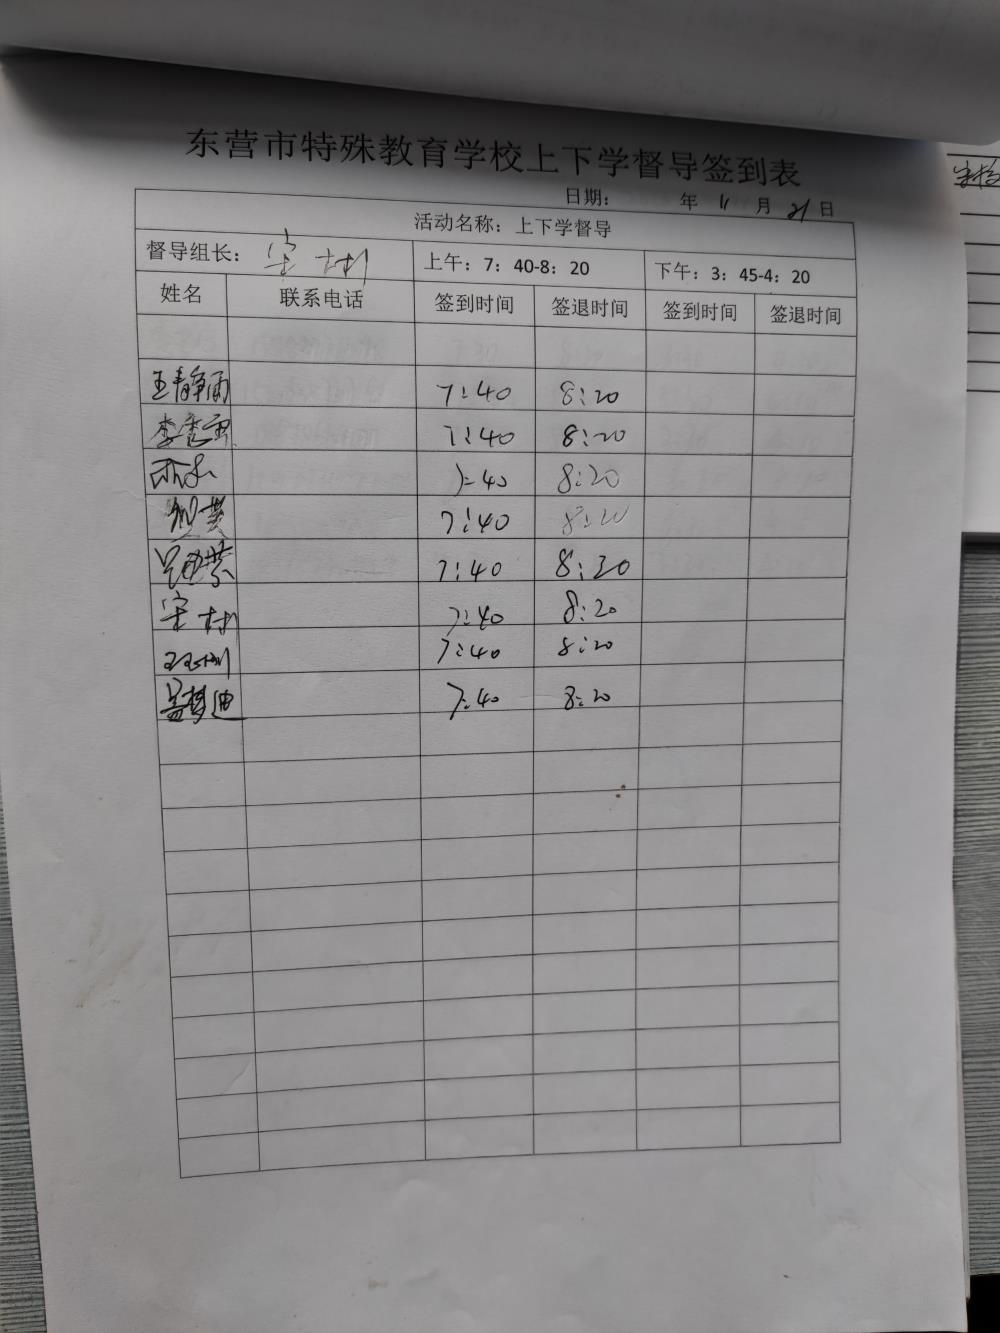 东营市特殊教育学校上下学督导签到表
日期: 年 11 月 21 日
活动名称：上下学督导
督导组长：宋村 上午：7：40-8：20 下午：3：45-4：20
姓名 联系电话 签到时间 签退时间 签到时间 签退时间
王静雨 7:40 8:20
李秀雷 7:40 8:20
7:40 8:20
7:40 8:20
7:40 8:20
宋村 7:40 8:20
7:40 8:20
孟梦迪 7:40 8:20